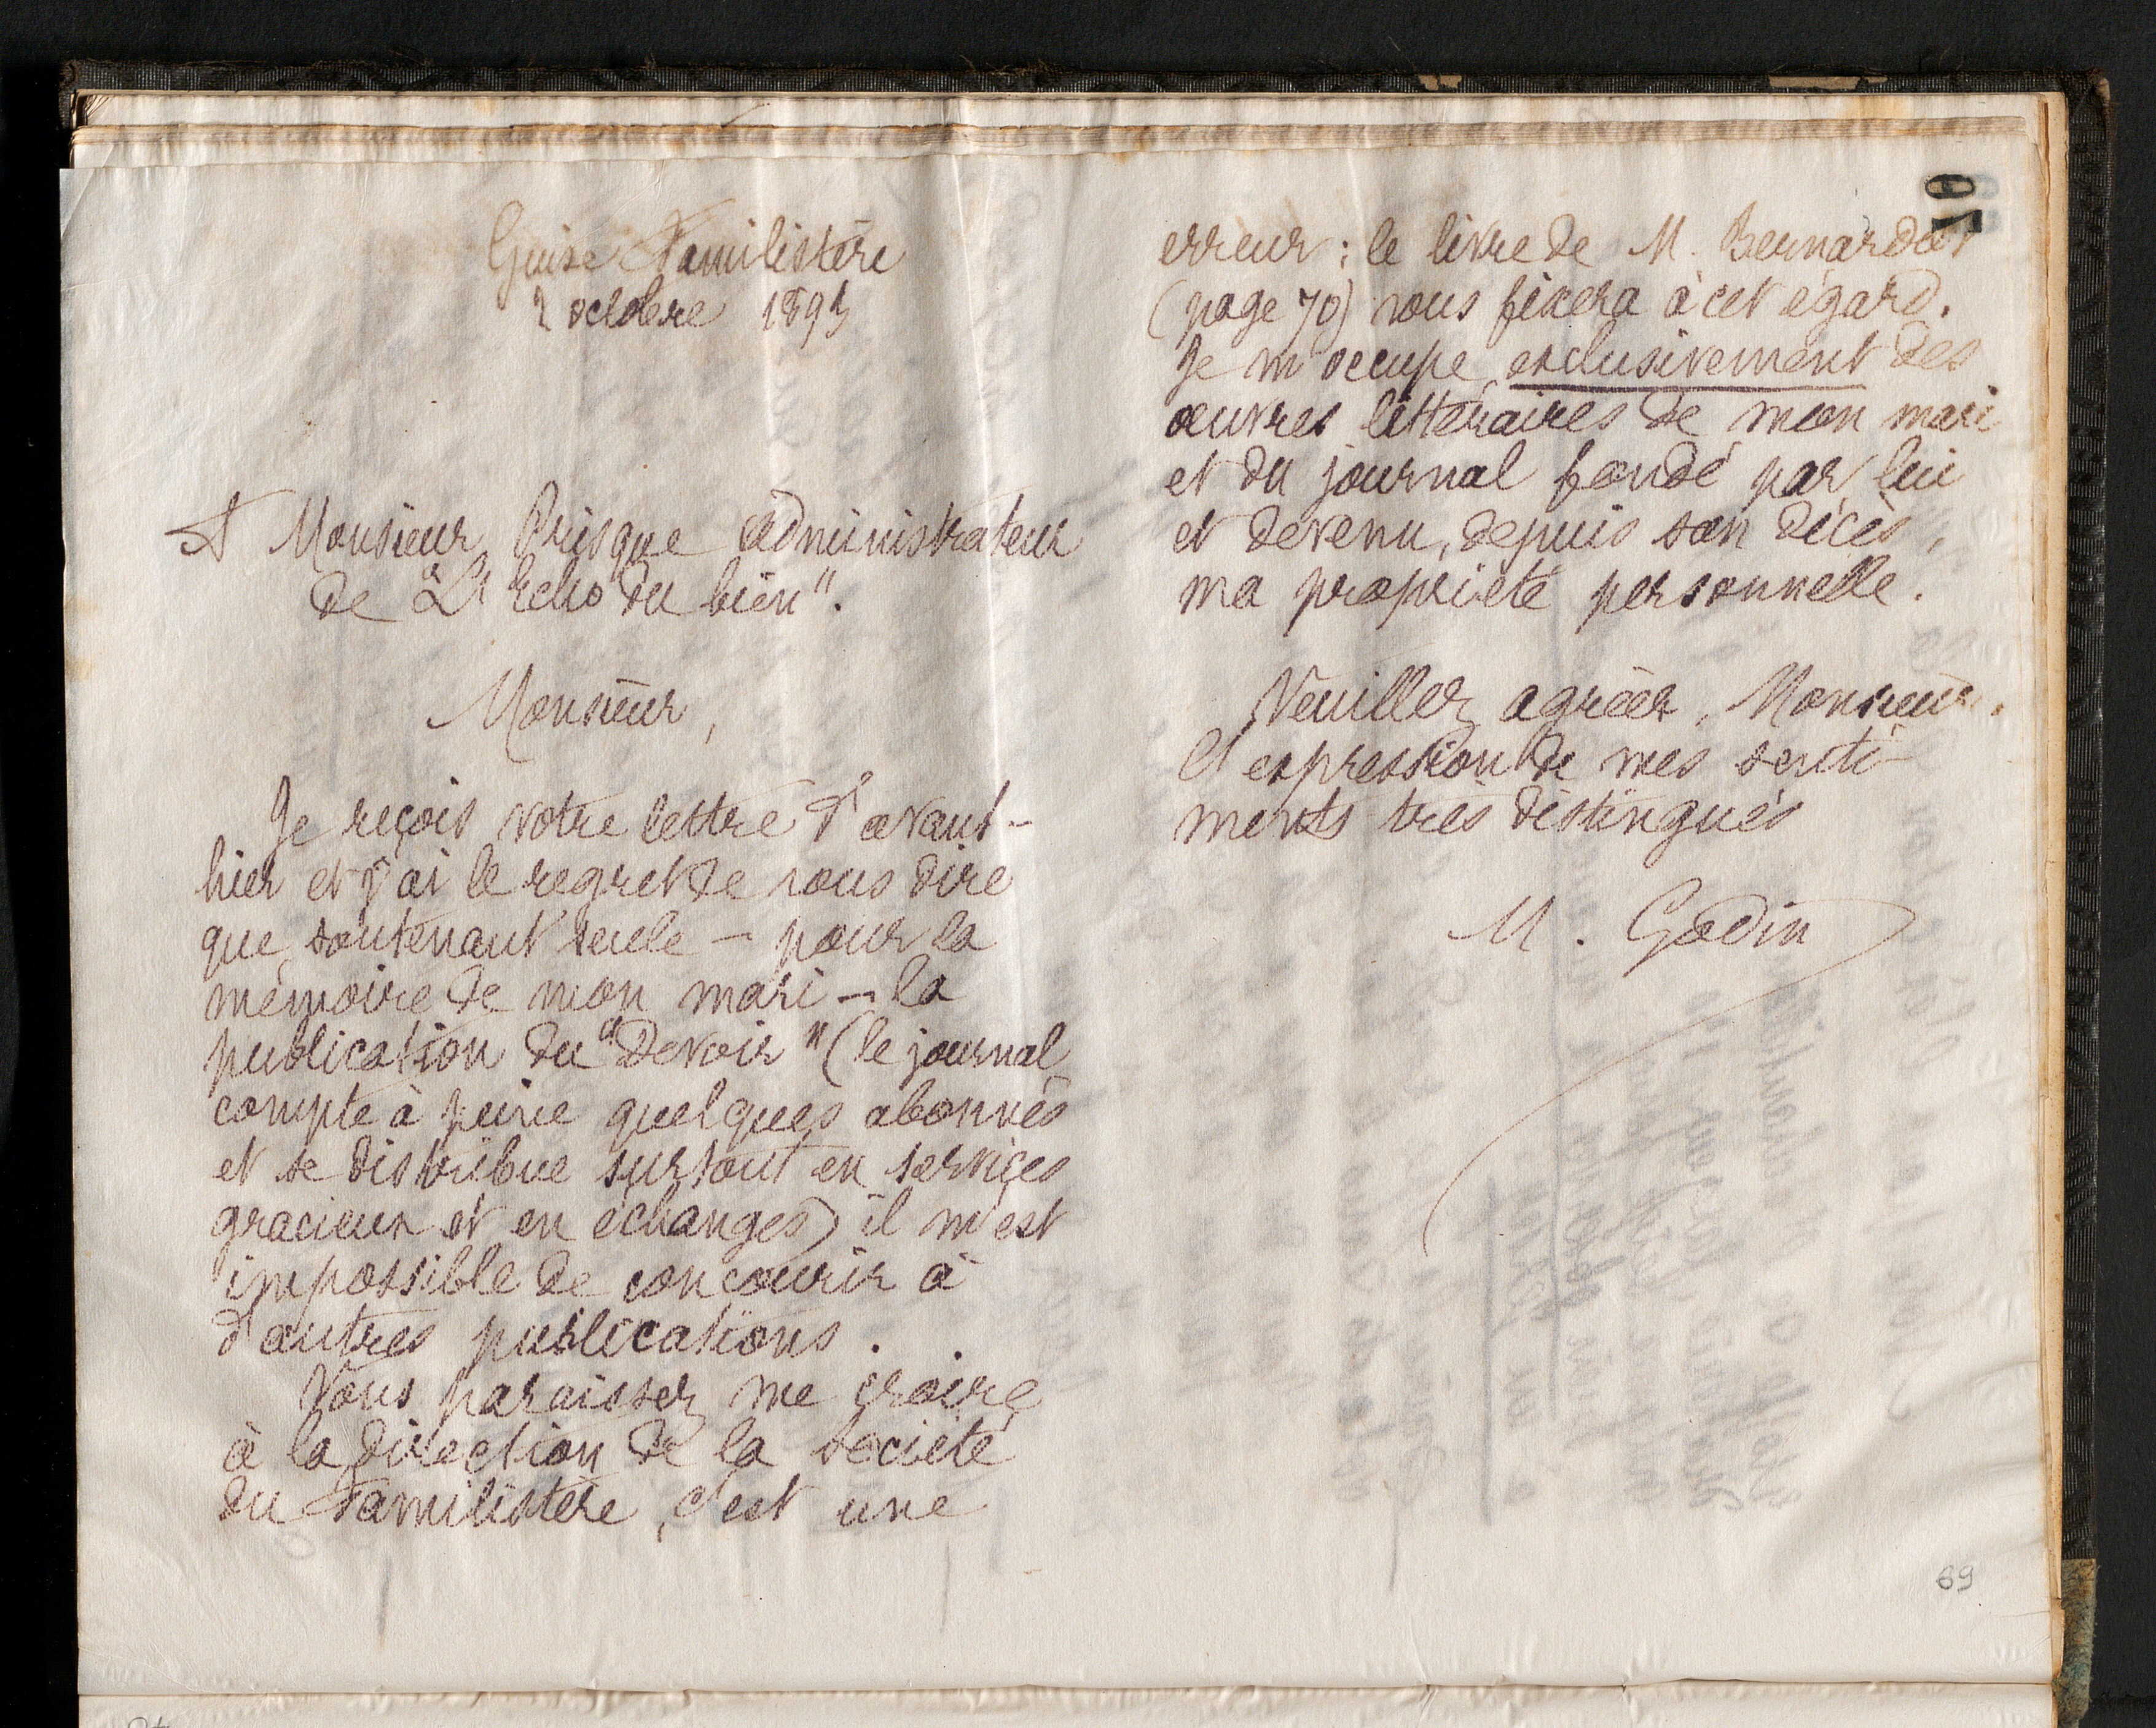 Guise Familistère
2 octobre 1893
A Monsieur Prisque administrateur
de "L'Echo du bien".
Monsieur,
Je reçois votre lettre d'avant-
hier et j'ai le regret de vous dire
que, soutenant seule — pour la
mémoire de mon mari — la
publication du "Devoir" (le journal
compte à peine quelques abonnés
et se distribue surtout en services
gracieux et en échanges) il m'est
impossible de concourir à
d'autres publications.
Vous paraissez me croire
à la direction de la société
du Familistère, c'est une
70
erreur : le livre de M. Bernardot
(page 70) vous fixera à cet égard.
Je m'occupe exclusivement des
œuvres littéraires de mon mari
et du journal fondé par lui
et devenu, depuis son décès,
ma propriété personnelle.
Veuillez agréer, Monsieur,
l'expression de mes senti-
ments très distingués
M. Godin
69